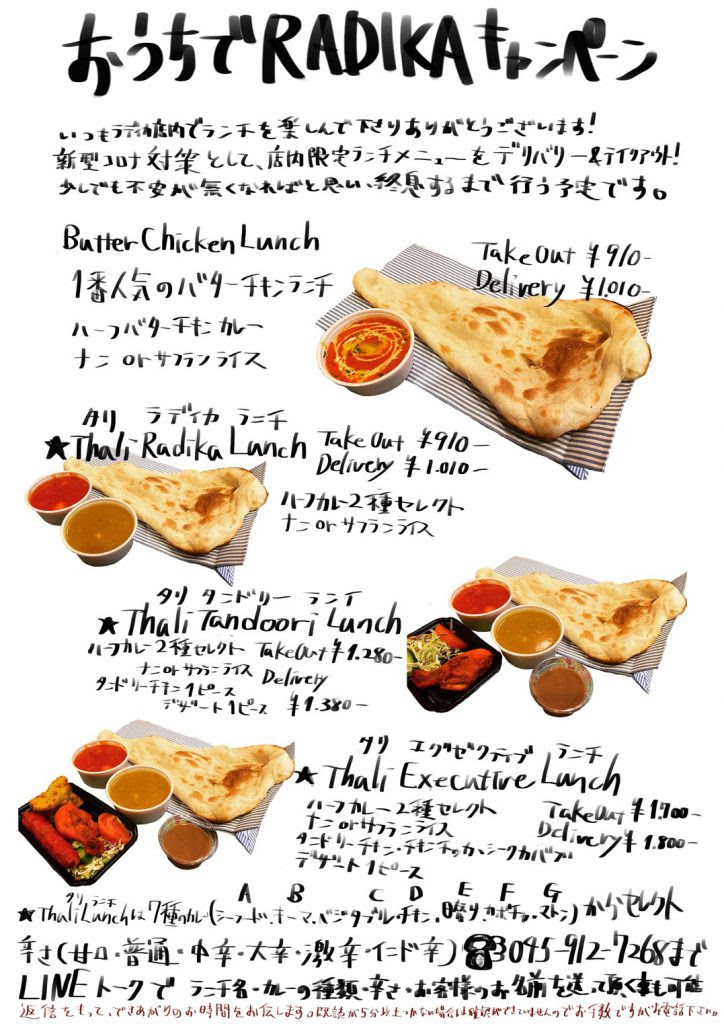 おうちでRADIKAキャンペーン
いつもラディカ店内でランチを楽しんで下さりありがとうございます!
新型コロナ対策として、店内限定ランチメニューをデリバリー&テイクアウト!
少しでも不安が無くなればと思い、終息するまで行う予定です。
Butter Chicken Lunch
Take Out ¥910-
Delivery ¥1.010-
1番人気のバターチキンランチ
ハーフバターチキンカレー
ナン orサフランライス
タリ ラディカ ランチ
★Thali Radika Lunch
Take Out ¥910-
Delivery ¥1.010-
ハーフカレー2種セレクト
ナンorサフランライス
タリ タンドリー ランイ
★Thali Tandoori Lunch
ハーフカレー2種セレクト Take Out ¥1.280-
ナンorサフランライス Delivery
タンドリーチキン1ピース ¥1.380-
デザート1ピース
タリ エグゼクティブ ランチ
★Thali Executive Lunch
ハーフカレー2種セレクト Take Out ¥1.700-
ナンorサフランライス Delivery ¥1.800-
タンドリーチキン・チキンチッカ・シークカバブ
デザート1ピース
A B C D E F G
タリ ランチ
★Thali Lunchは7種のカレー(シーフード、キーマ、ベジタブル、チキン、日替り、カボチャ、マトン)からセレクト
辛さ(甘口・普通・中辛・大辛・激辛・インド辛)☎045-912-7268まで
LINEトークでランチ名・カレーの種類・辛さ・お客様のお名前を送って頂く事も可能
返信をもって、できあがりのお時間をお伝えします。既読が5分以上つかない場合は確認ができていませんのでお手数ですがお電話下さい。